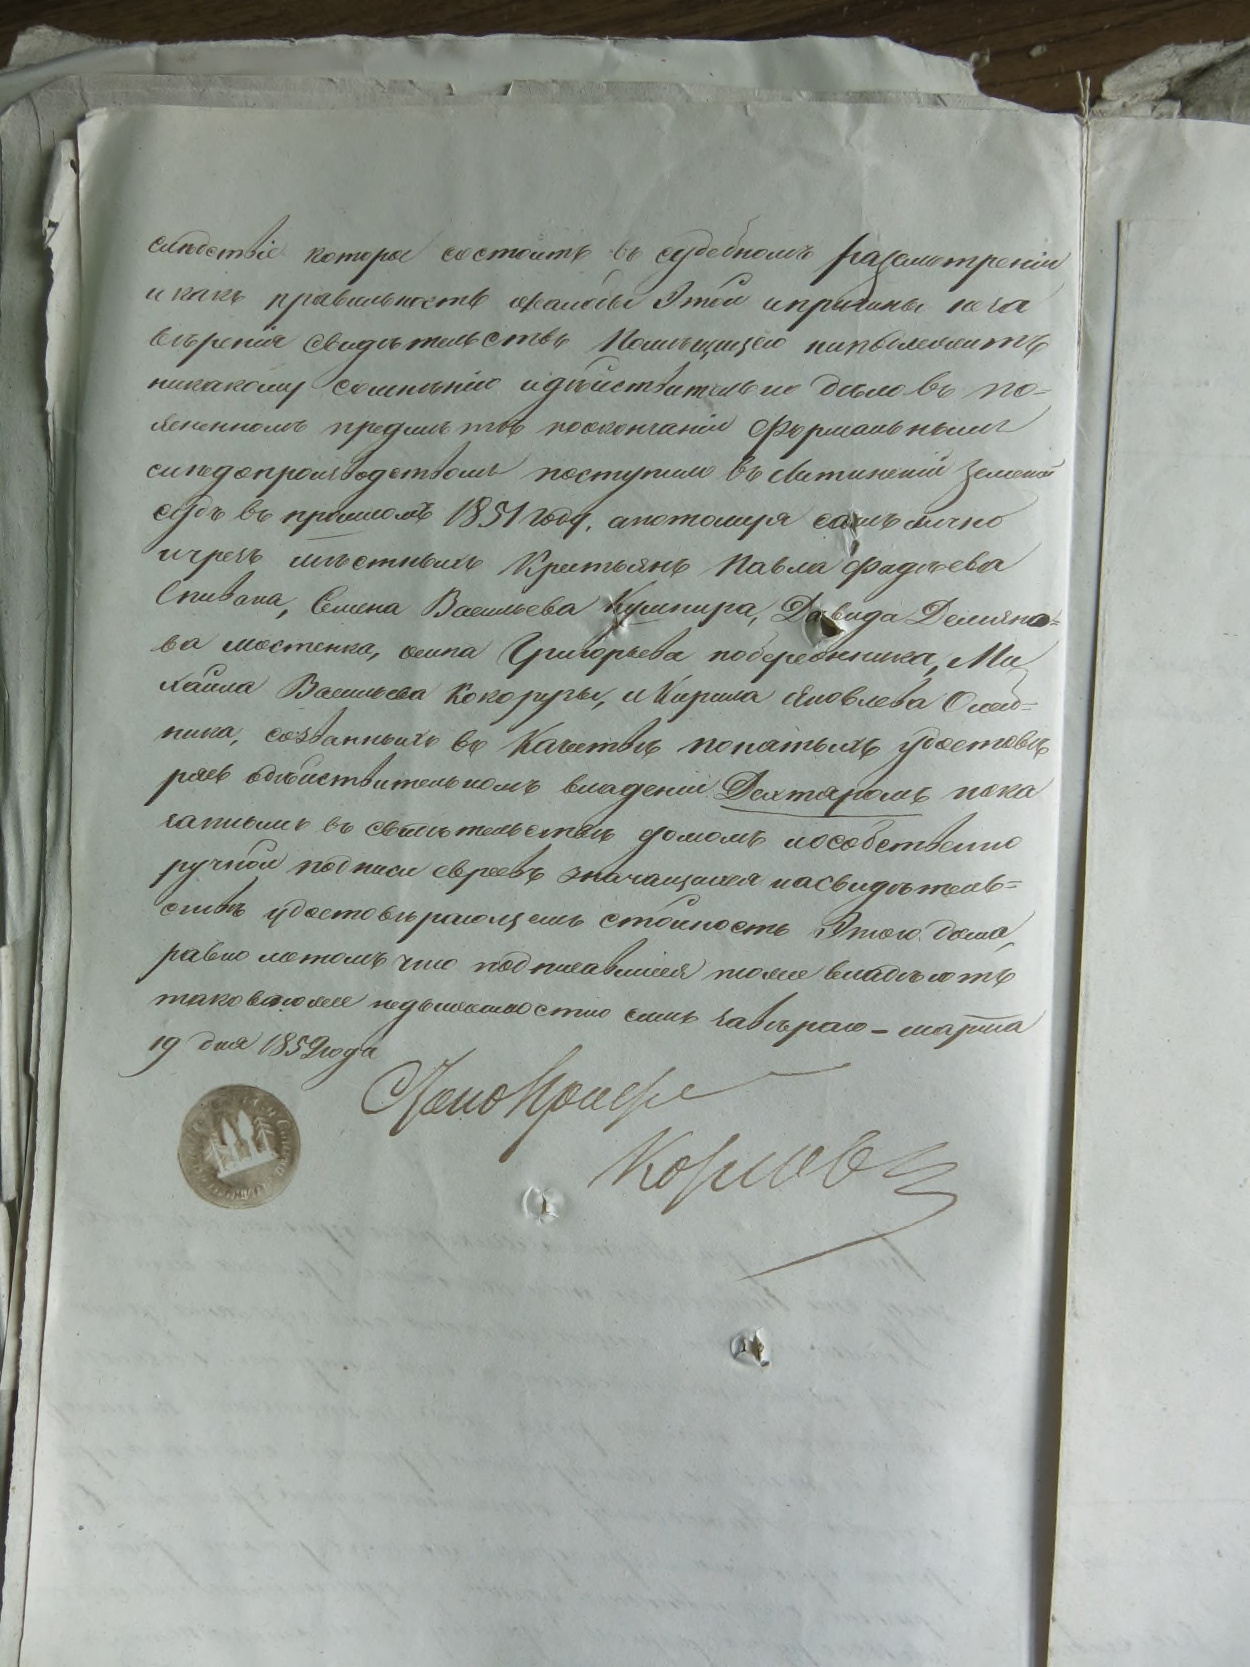 слѣдствіе которое состоитъ въ судебномъ разсмотреніи
и какъ правильность жалобы этой и причины неза
вѣренія свидѣтельства Помѣщицею неподлежитъ
никакому сомненію идѣйствительно дѣло въ по-
ясненномъ предмѣтѣ поокончаніи формальнымъ
слѣдопроизводствомъ поступило въ Литинскій Земскій
судъ въ прошломъ 1851 году, апотомуя самъ лично
ичрезъ мѣстныхъ Крестьянъ Павла Фадѣева
Спивака, Семена Васильева Кушнира, Давида Демяно=
ва мостенка, осипа Григорьева побережника, Ми
хайла Васильева Кокоруры, и Кирила Яковлева Олей=
ника, созванныхъ въ Качествѣ понятыхъ удостовѣ
рясь одѣйствительномъ владеніи Дехтяромъ пока
заннымъ въ свидѣтельствѣ домомъ исобственно
ручной подписи евреевъ значащихся насвидѣтель=
ствѣ удостовѣряющемъ стоимость этого дома,
равно иотомъ что подписавшіеся тоже владѣютъ
таковоюже недвижимостью симъ завѣряю – марта
19 дня 1852 года